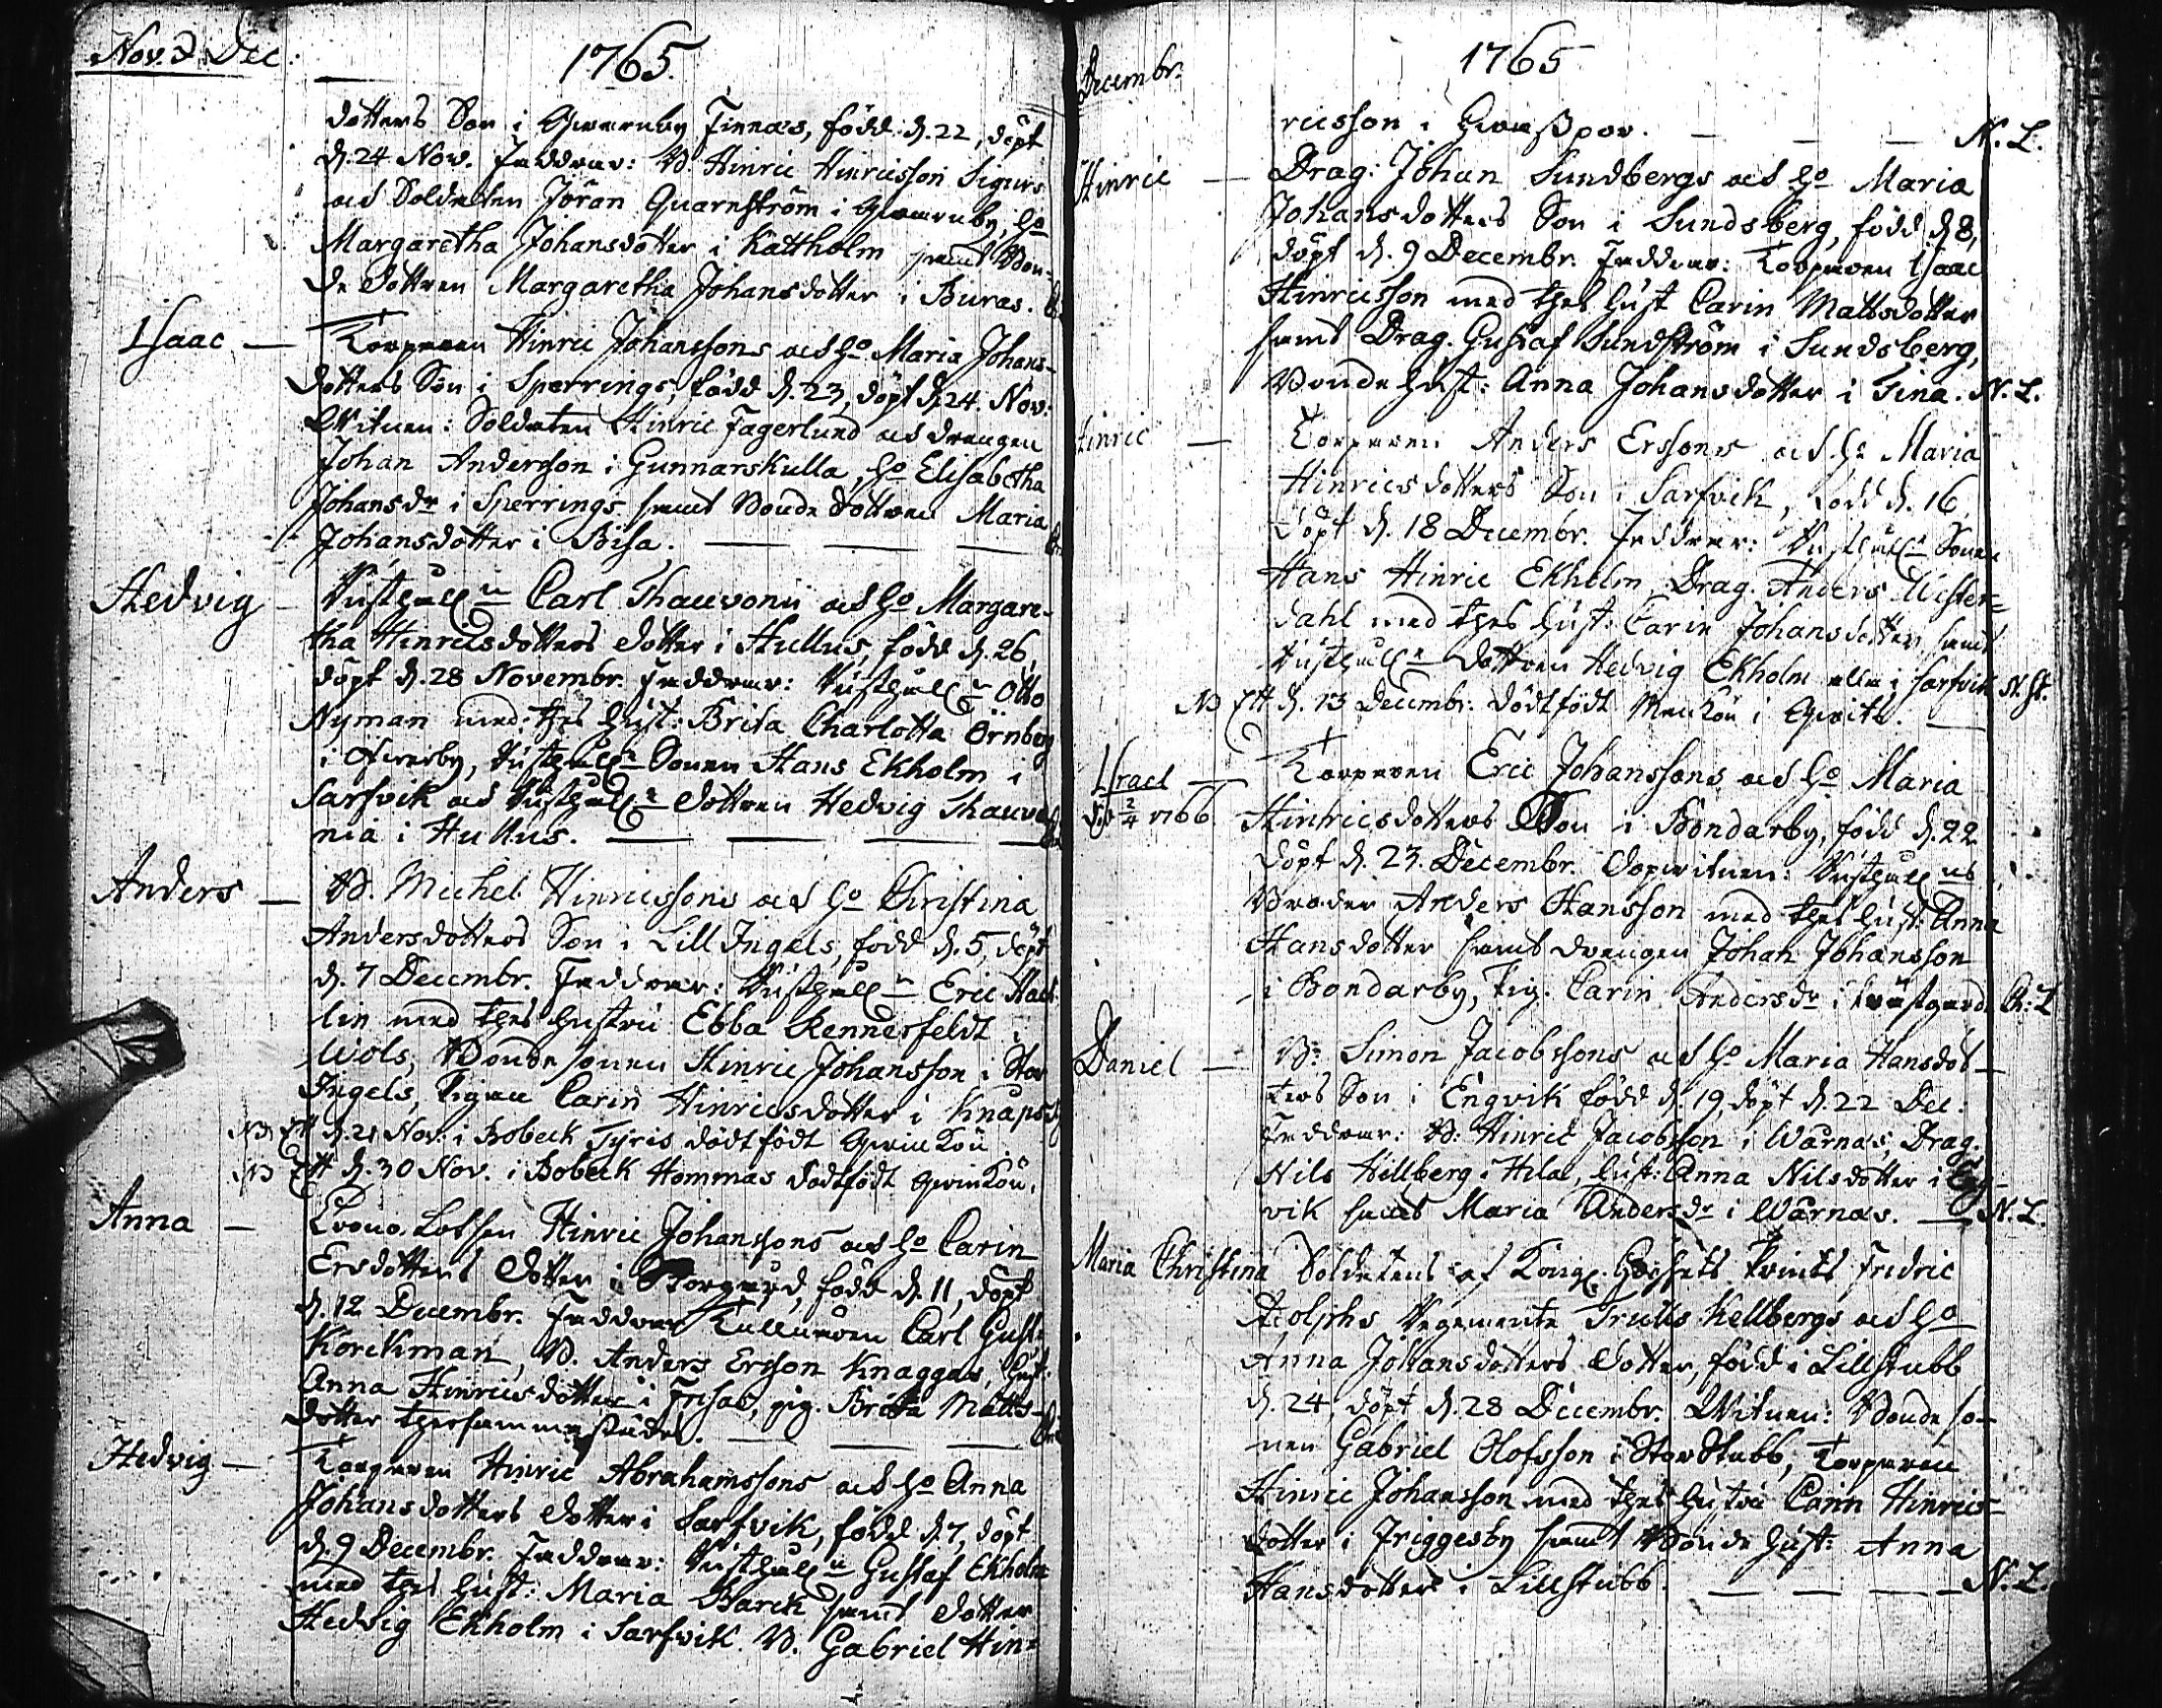 Nov. & Dec:
1765.
dotters Son i Qwarnby Finnas, född d. 22, döpt
d. 24 Nov. Faddrar: B. Hinric Hinricsson Sigurs
ock Soldaten Jöran Quarnström i Qwarnby, ho
Margaretha Johansdotter i Kattholm samt Bon-
de dottren Margaretha Johansdotter i Buras.
Isaac — Torparen Hinric Johanssons ock ho Maria Johans-
dotters Son i Sperrings, född d. 23, döpt d. 24. Nov:
Witnen: Soldaten Hinric Fagerlund ock drengen
Johan Andersson i Gunnarskulla, ho Elisabetha
Johansdr i Sperrings samt Bonde dottren Maria
Johansdotter i Bisa.
Hedvig — Rusthålln Carl Thauvonii ock ho Margare-
tha Hinricsdotters dotter i Hullus, född d. 26,
döpt d. 28 Novembr. Faddrar: Rusthålln Otto
Nyman med thes hust: Brita Charlotta Örnberg
i Ofverby, Rusthålls Sonen Hans Ekholm i
Sarfvik ock Rusthålls dottren Hedvig Thauvo
nia i Hullus.
Anders — B. Michel Hinricssons ock ho Christina
Andersdotters Son i Lill Ingels, född d. 5, döpt
d. 7 Decembr. Faddrar: Rusthålln Eric
lin med thes hustru Ebba Rennerfeldt i
Wols, Bonde sonen Hinric Johansson i Stor
Ingels, Pigan Carin Hinricsdotter i Knaps
NB Ett d. 21 Nov: i Bobeck Tyris dödfödt Qwinkön
NB Ett d. 30 Nov. i Bobeck Hommas dödfödt Qwinkön.
Anna — Crono Lotsen Hinric Johanssons ock ho Carin
Ersdotters dotter i Storgård, född d. 11, döpt
d. 12 Decembr. Faddrar Carl Gust:
Korckman, B. Andders Ersson Knaggas, hust:
Anna Hinricsdotter i Frisas, pig. Brita Matts-
dotter thersammastädes.
Hedvig — Torparen Hinric Abrahamssons ock ho Anna
Johansdotters dotter i Sarfvik, född d. 7, döpt
d. 9 Decembr. Faddrar: Rusthålln Gustaf Ekholm
med thes hust: Maria Barck samt dotter
Hedvig Ekholm i Sarfvik. B. Gabriel Hin=
Decembr.
1765
ricsson i N. L.
Hinric — Drag: Johan Sundbergs ock ho Maria
Johansdotters Son i Sundsberg, född d. 8,
döpt d. 9 Decembr. Faddrar: Torparen Isaac
Hinricsson med thes hust Carin Mattsdotter
samt Drag. Gustaf Sundström i Sundsberg,
Bonde hust: Anna Johansdotter i Tina. N. L.
Hinric — Torparen Anders Erssons ock ho Maria
Hinricsdotters Son i Sarfvik, född d. 16
döpt d. 18 Decembr. Faddrar: Rusthålls Sonen
Hans Hinric Ekholm, Drag. Anders Wester=
dahl med thes hust: Carin Johansdotter, samt
Rusthålls dottren Hedvig Ekholm alla i Sarfvik
NB Ett d. 13 Decembr: dödtfödt Mankön i Qwitb.
Israel — Torparen Eric Johanssons ock ho Maria
död 2/4 1766. Hinricsdotters Son i Bondarby, född d. 22
döpt d. 23. Decembr. Dopwitnen: Rusthålls
Broder Anders Hansson med thes hust: Anna
Hansdotter samt drengen Johan Johansson
i Bondarby, Pig. Carin Andersdr i
Daniel — B: Simon Jacobssons ock ho Maria Hansdot-
ters Son i Engvik född d. 19, döpt d. 22 Dec:
Faddrar: B: Hinric Jacobsson i Wårnas, Drag.
Nils Hillberg i Hila, hust: Anna Nilsdotter i Eng-
vik samt Maria Andersdr i Wårnas. — N. L.
Maria Christina Soldatens af Kongl. Höghets Prints Fredric
Adolphs Regemente Trulls Kellbergs ock ho
Anna Johansdotters dotter, född i Lillstubb
d. 24, döpt d. 28 Decembr. Witnen: Bonde so-
nen Gabriel Olofsson i Storstubb, Torparen
Hinric Johansson med thes hustru Carin Hinrics-
dotter i Friggesby samt Bonde hust: Anna
Hansdotter i Lillstubb. N. L.